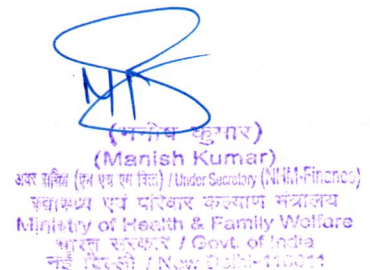 (मनीष कुमार)
(Manish Kumar)
अवर सचिव (एन एच एम वित्त) / Under Secretary (NHM-Finance)
स्वास्थ्य एवं परिवार कल्याण मंत्रालय
Ministry of Health & Family Welfare
भारत सरकार / Govt. of India
नई दिल्ली / New Delhi-110011